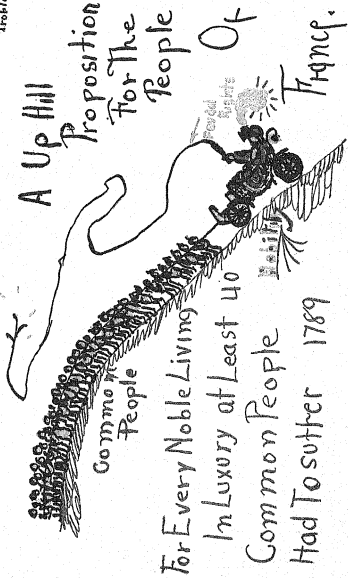 A Up Hill
Proposition
For The
People
Of
France.
Feudal Rights
Nobility
Common
People
For Every Noble Living
In Luxury at Least 40
Common People
Had To suffer 1789